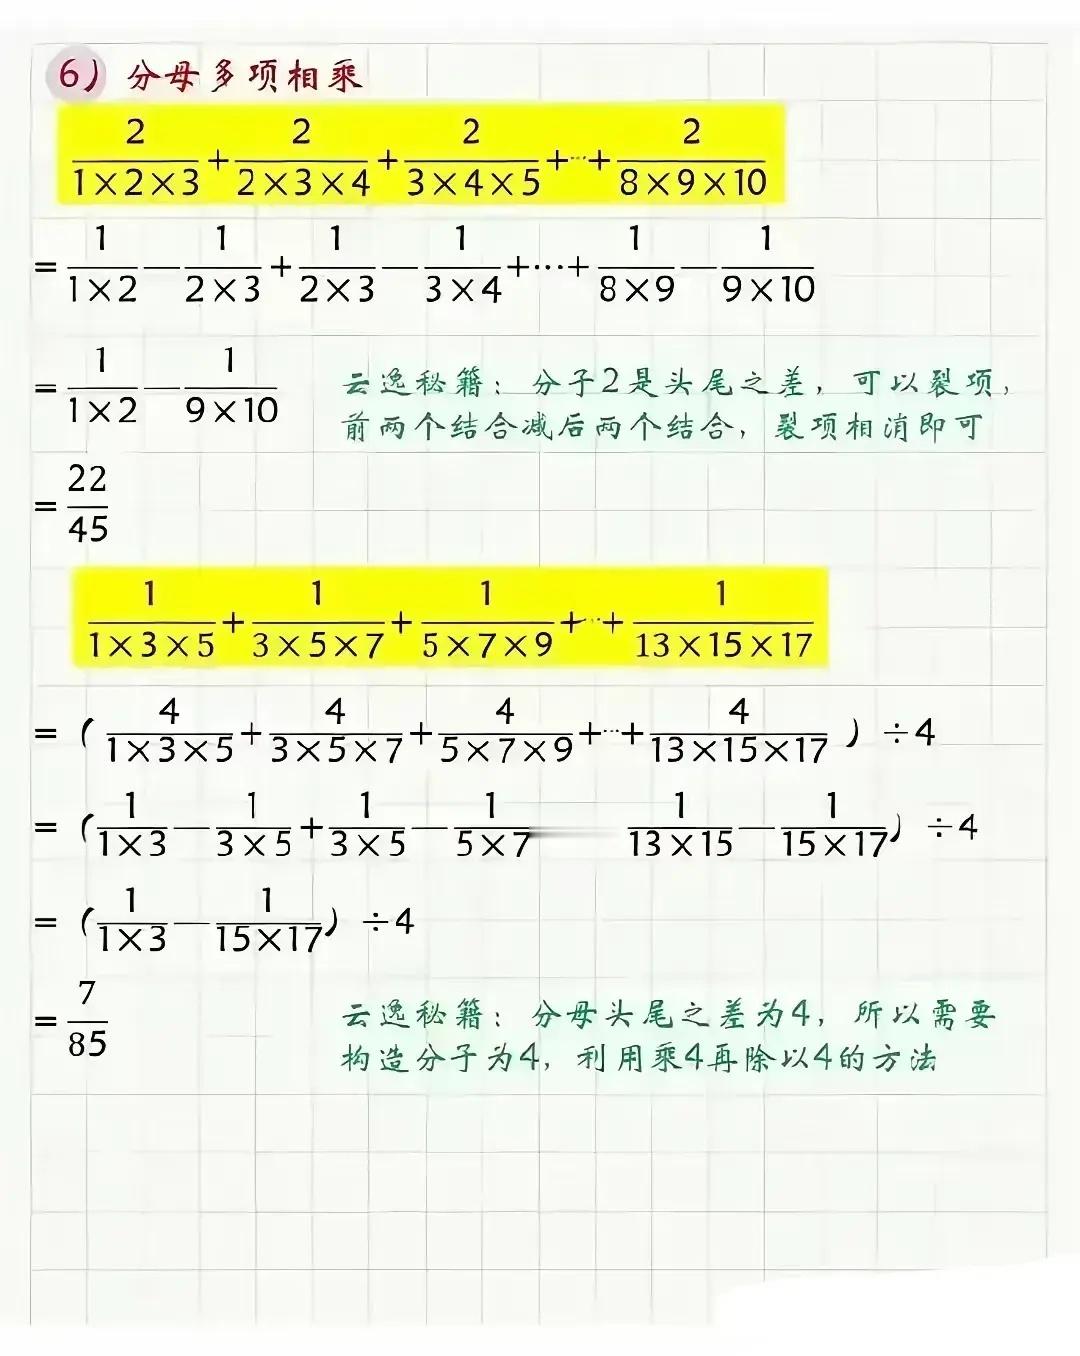 6) 分母多项相乘
2/(1×2×3) + 2/(2×3×4) + 2/(3×4×5) +···+ 2/(8×9×10)
= 1/(1×2) — 1/(2×3) + 1/(2×3) — 1/(3×4) +···+ 1/(8×9) — 1/(9×10)
= 1/(1×2) — 1/(9×10)
云逸秘籍：分子2是头尾之差，可以裂项，
前两个结合减后两个结合，裂项相消即可
= 22/45
1/(1×3×5) + 1/(3×5×7) + 1/(5×7×9) +···+ 1/(13×15×17)
=（4/(1×3×5) + 4/(3×5×7) + 4/(5×7×9) +···+ 4/(13×15×17)）÷4
=（1/(1×3) — 1/(3×5) + 1/(3×5) — 1/(5×7) 1/(13×15) — 1/(15×17)）÷4
=（1/(1×3) — 1/(15×17)）÷4
= 7/85
云逸秘籍：分母头尾之差为4，所以需要
构造分子为4，利用乘4再除以4的方法